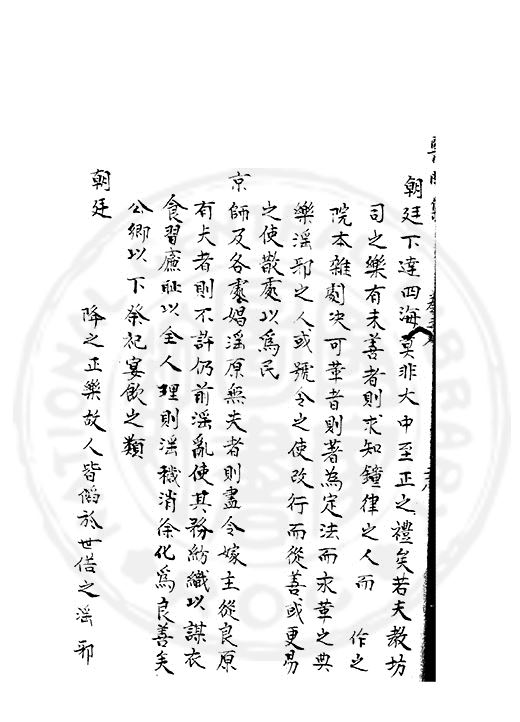 朝廷下達四海莫非大中至正之禮矣若夫教坊
司之樂有未善者則求知鐘律之人而 作之
院本雜劇决可革者則著為定法而求革之典
樂滛邪之人或號令之使改行而從善或更易
之使散處以為民
京師及各處娼滛原無夫者則盡令嫁主從良原
有夫者則不許仍前滛亂使其務紡織以謀衣
食習廉耻以全人理則滛穢消除化為良善矣
公卿以下祭祀宴飲之類
朝廷 降之正樂故人皆僞於世俗之滛邪